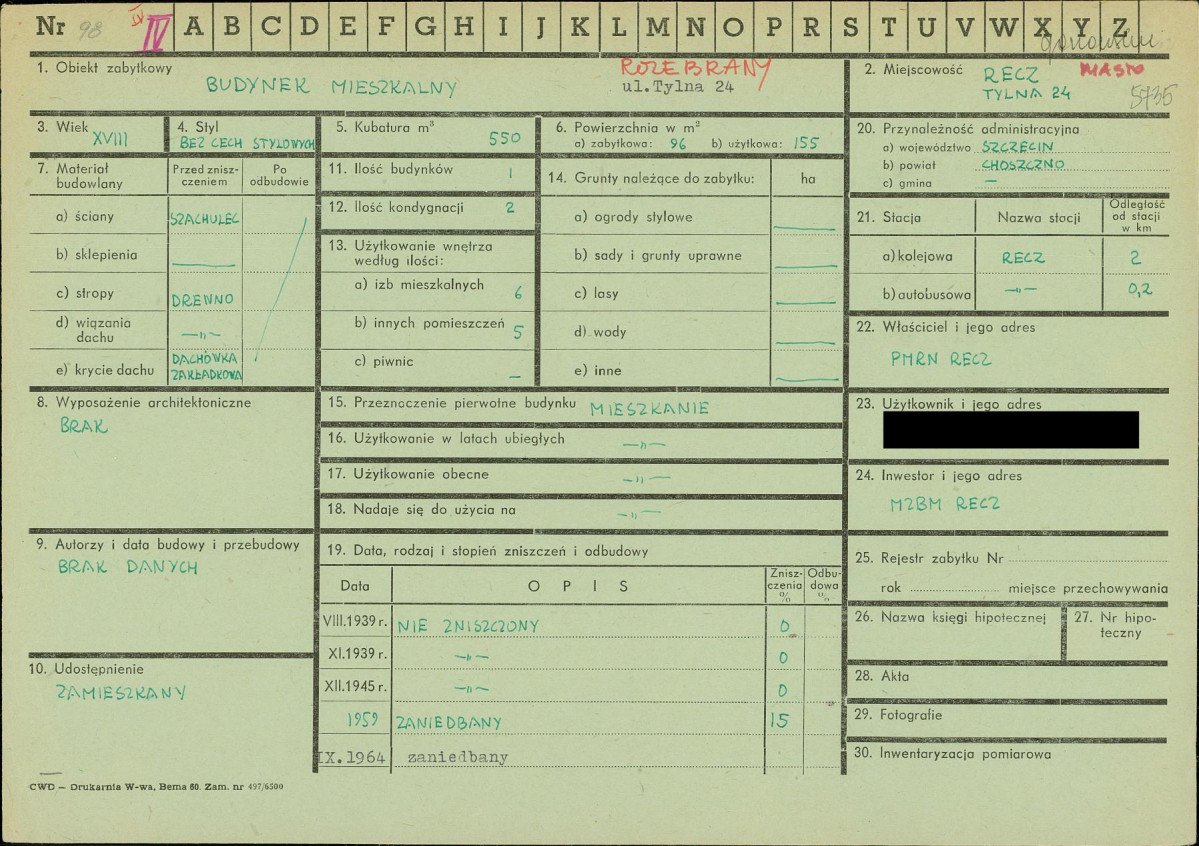 Nr 98 IV IV A B C D E F G H I J K L M N O P R S T U V W X Y Z
1. Obiekt zabytkowy
BUDYNEK MIESZKALNY
ROZEBRANY
ul.Tylna 24
2. Miejscowość RECZ MIASTO
TYLNA 24
5735
3. Wiek
XVIII
4. Styl
BEZ CECH STYLOWYCH
5. Kubatura m³
550
6. Powierzchnia w m²
a) zabytkowa: 96 b) użytkowa: 155
20. Przynależność administracyjna
a) województwo SZCZECIN
b) powiat CHOSZCZNO
c) gmina —
7. Materiał budowlany
Przed znisz-
czeniem
Po
odbudowie
a) ściany SZACHULEC
b) sklepienia —
c) stropy DREWNO
d) wiązania
dachu —„—
e) krycie dachu DACHÓWKA
ZAKŁADKOWA
11. Ilość budynków 1
12. Ilość kondygnacji 2
13. Użytkowanie wnętrza
według ilości:
a) izb mieszkalnych 6
b) innych pomieszczeń 5
c) piwnic —
14. Grunty należące do zabytku: ha
a) ogrody stylowe —
b) sady i grunty uprawne —
c) lasy —
d) wody —
e) inne —
21. Stacja
Nazwa stacji
Odległość
od stacji
w km
a) kolejowa RECZ 2
b) autobusowa —„— 0,2
22. Właściciel i jego adres
PMRN RECZ
8. Wyposażenie architektoniczne
BRAK
15. Przeznaczenie pierwotne budynku MIESZKANIE
16. Użytkowanie w latach ubiegłych —„—
17. Użytkowanie obecne —„—
18. Nadaje się do użycia na —„—
23. Użytkownik i jego adres
24. Inwestor i jego adres
MZBM RECZ
9. Autorzy i data budowy i przebudowy
BRAK DANYCH
10. Udostępnienie
ZAMIESZKANY
19. Data, rodzaj i stopień zniszczeń i odbudowy
Data
OPIS
Znisz-
czenia
%
Odbu-
dowa
%
VIII.1939 r. NIE ZNISZCZONY 0
XI.1939 r. —„— 0
XII.1945 r. —„— 0
1959 ZANIEDBANY 15
IX.1964 zaniedbany
25. Rejestr zabytku Nr
rok miejsce przechowywania
26. Nazwa księgi hipotecznej
27. Nr hipo-
teczny
28. Akta
29. Fotografie
30. Inwentaryzacja pomiarowa
CWD — Drukarnia W-wa, Bema 60. Zam. nr 497/6500